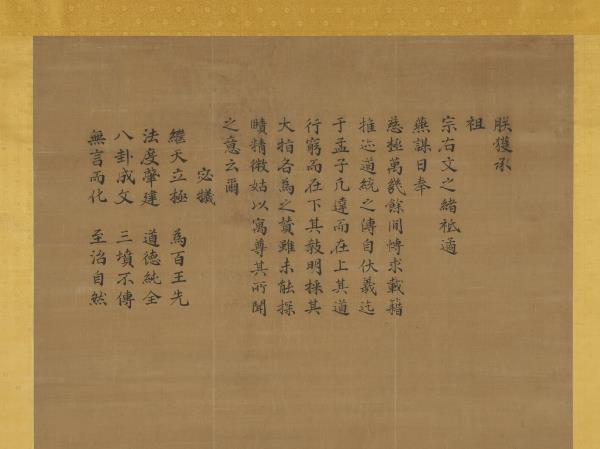 朕獲承
祖
宗右文之緒祗遹
燕謀日奉
慈極萬幾餘閒博求載籍
推迹道統之傳自伏羲迄
于孟子凡達而在上其道
行窮而在下其教明採其
大指各為之贊雖未能探
賾精微姑以寓尊其所聞
之意云爾
宓犧
繼天立極 為百王先
法度肇建 道德純全
八卦成文 三墳不傳
無言而化 至治自然